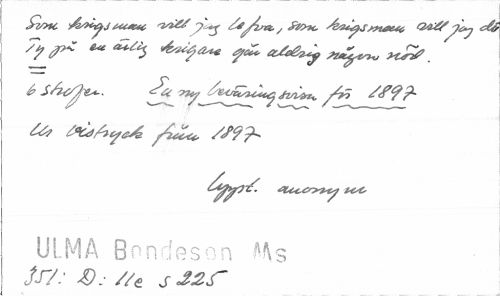 Som krigsman vill jag lefva, som krigsman vill jag dö
Ty på en ärlig krigare går aldrig någon nöd.
6 strofer. En ny beväringsvisa för 1897
Ur vistryck från 1897
anonym
ULMA Bondeson Ms
351: D: 11e s 225